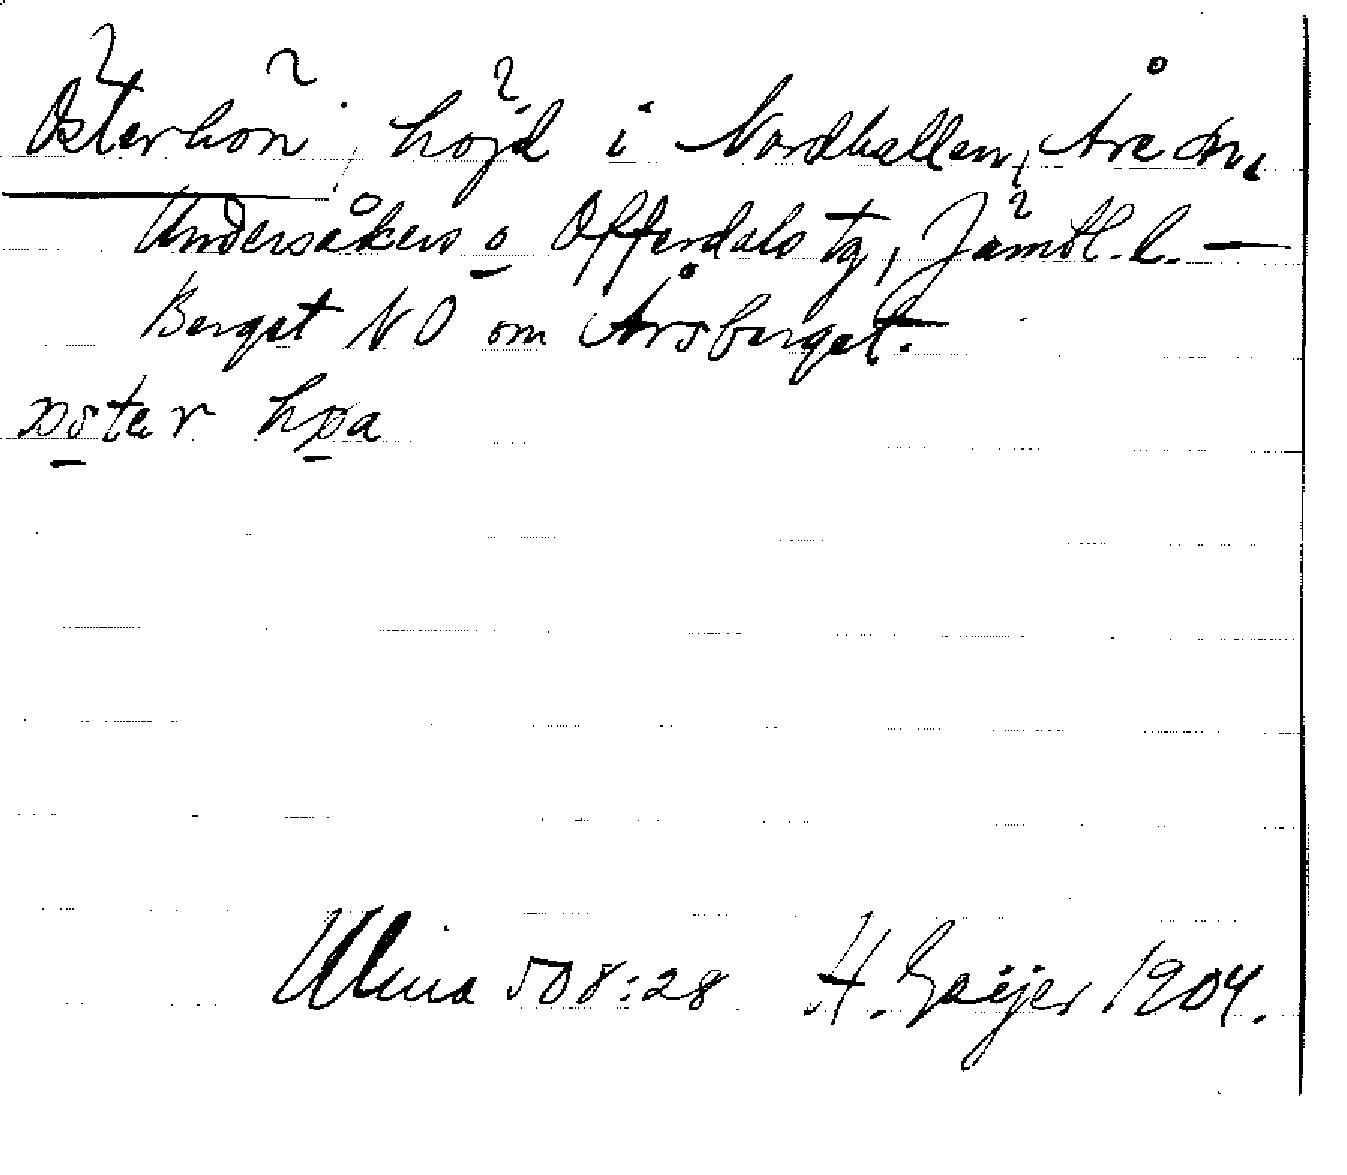 Österhön, höjd i Nordhallen, Åre sn,
Undersåkers o Offerdals tg, Jämtl. l. —
Berget NO om Åröberget.
østar høa
Ulma 508:28 H. Geijer 1904.